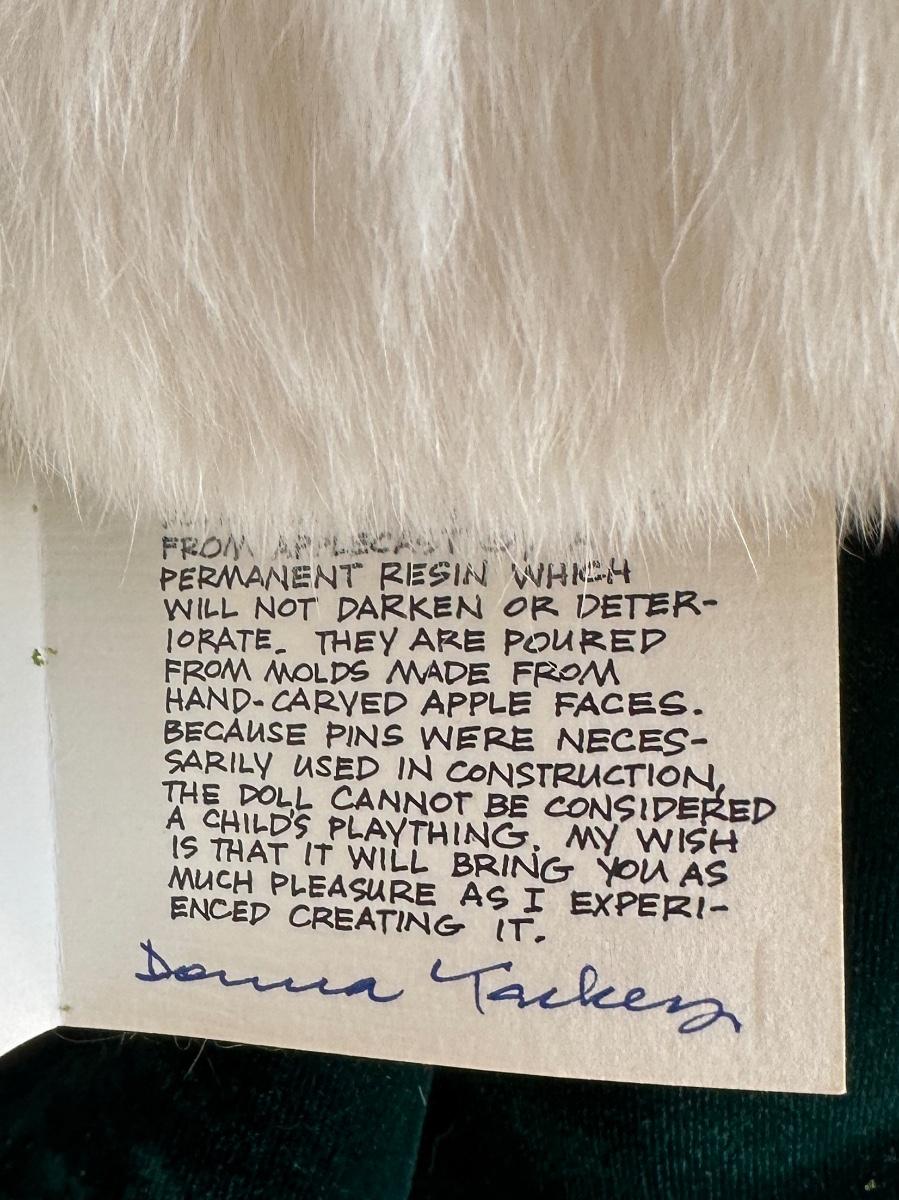 FROM APPLECAST
PERMANENT RESIN WHICH
WILL NOT DARKEN OR DETER-
IORATE. THEY ARE POURED
FROM MOLDS MADE FROM
HAND-CARVED APPLE FACES.
BECAUSE PINS WERE NECES-
SARILY USED IN CONSTRUCTION,
THE DOLL CANNOT BE CONSIDERED
A CHILD'S PLAYTHING. MY WISH
IS THAT IT WILL BRING YOU AS
MUCH PLEASURE AS I EXPERI-
ENCED CREATING IT.
Donna